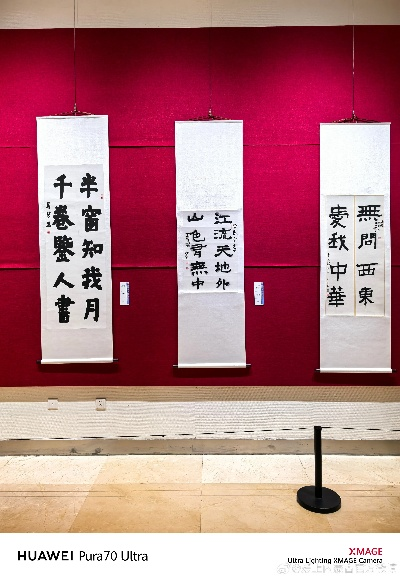 半窗知我月
千卷鑒人書
江流天地外
山色有無中
無問西東
愛我中華
HUAWEI Pura70 Ultra
XMAGE
Ultra Lighting XMAGE Camera